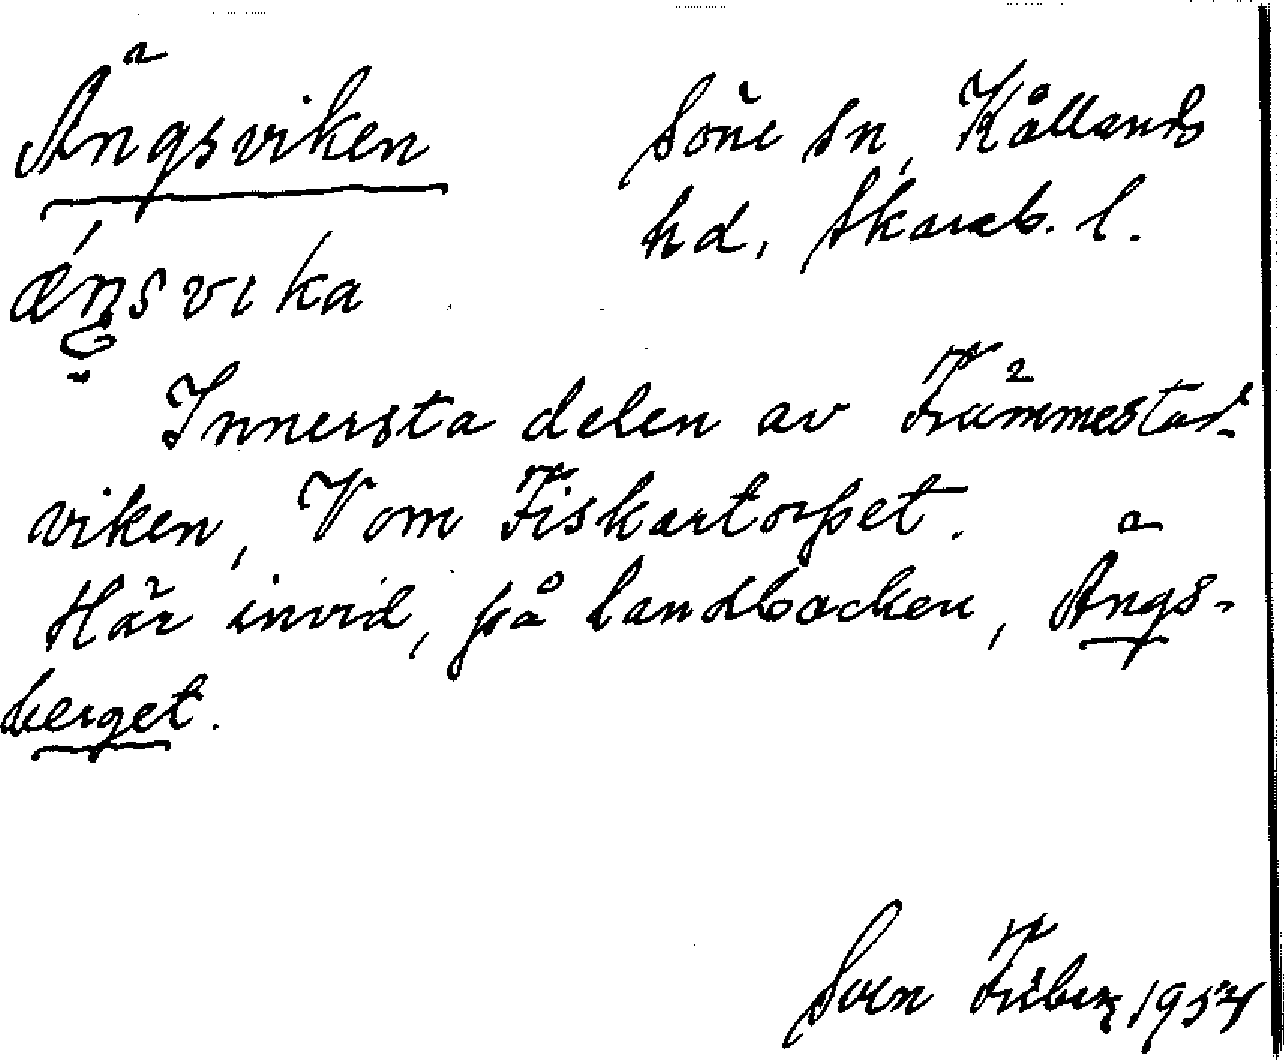 Ängsviken
Söne sn, Kållands
hd, Skarab. l.
ǽŋsvika
Innersta delen av Främmestad-
viken, V om Fiskartorpet.
Här invid, på landbacken, Ängs-
berget.
Sven 1954